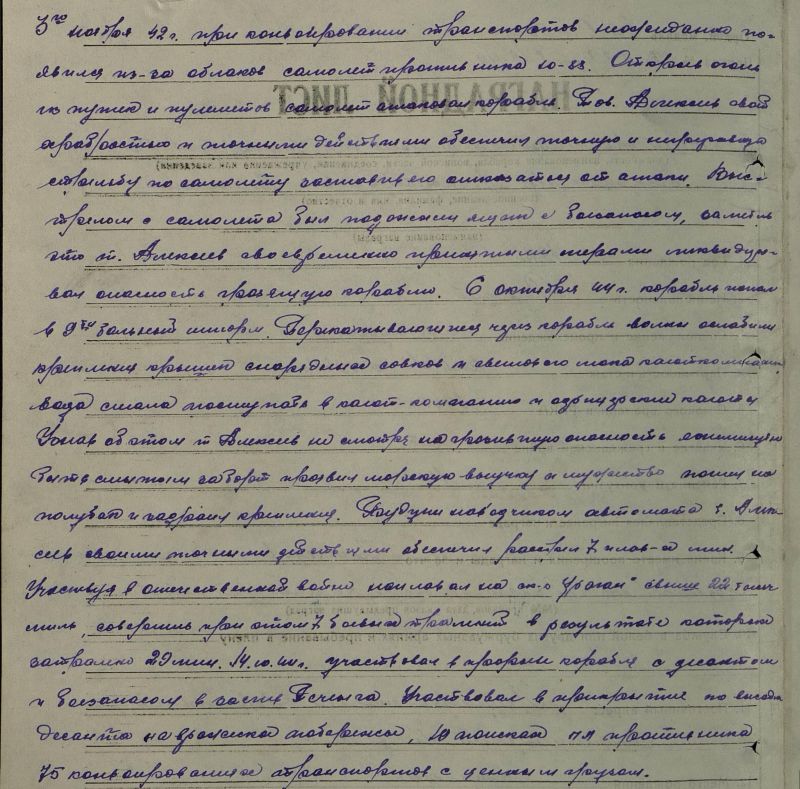 3го ноября 42 г. при конвоировании транспортов неожиданно по-
явился из-за облаков самолет противника Ю-88. Открыв огонь
из пушек и пулеметов самолет атаковал корабль. Тов. Алексеев своей
храбростью и точными действиями обеспечил точную и непрерывную
стрельбу по самолету заставив его отказаться от атаки. Выс-
трелом с самолета был подожжен ящик с боезапасом, заметив
это т. Алексеев своевременно принятыми мерами ликвидиро-
вал опасность грозящую кораблю. 6 октября 44 г. корабль попал
в 9ти бальный шторм. Перекатывающиеся через корабль волны ослабили
крепления крышек снарядных и светового люка кают-компании
вода стала поступать в кают-компанию и офицерские каюты
Узнав об этом т. Алексеев не смотря на грозившую опасность
быть смытым за борт проявил морскую выучку и мужество пошел на
полубак и задраил крепления. Будучи наводчиком автомата т. Алек-
сеев своими точными действиями обеспечил расстрел 7 плав-х мин.
Участвуя в отечественной войне наплавал на "Ураган" свыше 22 тысяч
миль, совершил при этом 7 боевых тралений в результате которых
затралено 29 мин. 14.10.44 г. участвовал в прорыве корабля с десантом
и боезапасом в залив Печенга. Участвовал в прикрытие по высадке
десанта на вражеское побережье, 10 поисках пл противника
75 конвоированиях транспортов с ценным грузом.
НАГРАДНОЙ ЛИСТ